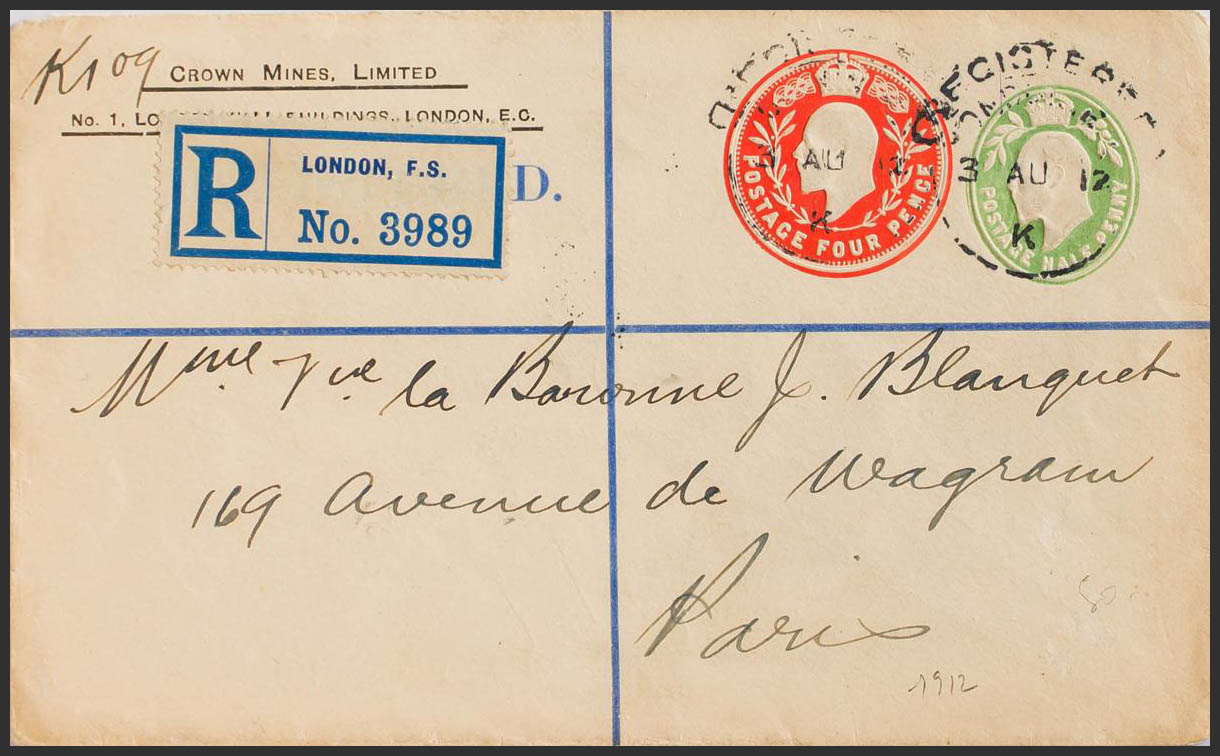 K109
CROWN MINES, LIMITED
No. 1, LONDON WALL BUILDINGS, LONDON, E.C.
D.
R
LONDON, F.S.
No. 3989
POSTAGE FOUR PENCE
AU 12
K
REGISTERED
3 AU 12
K
POSTAGE HALFPENNY
Mme Vve la Baronne J. Blanquet
169 Avenue de Wagram
Paris
80
1912